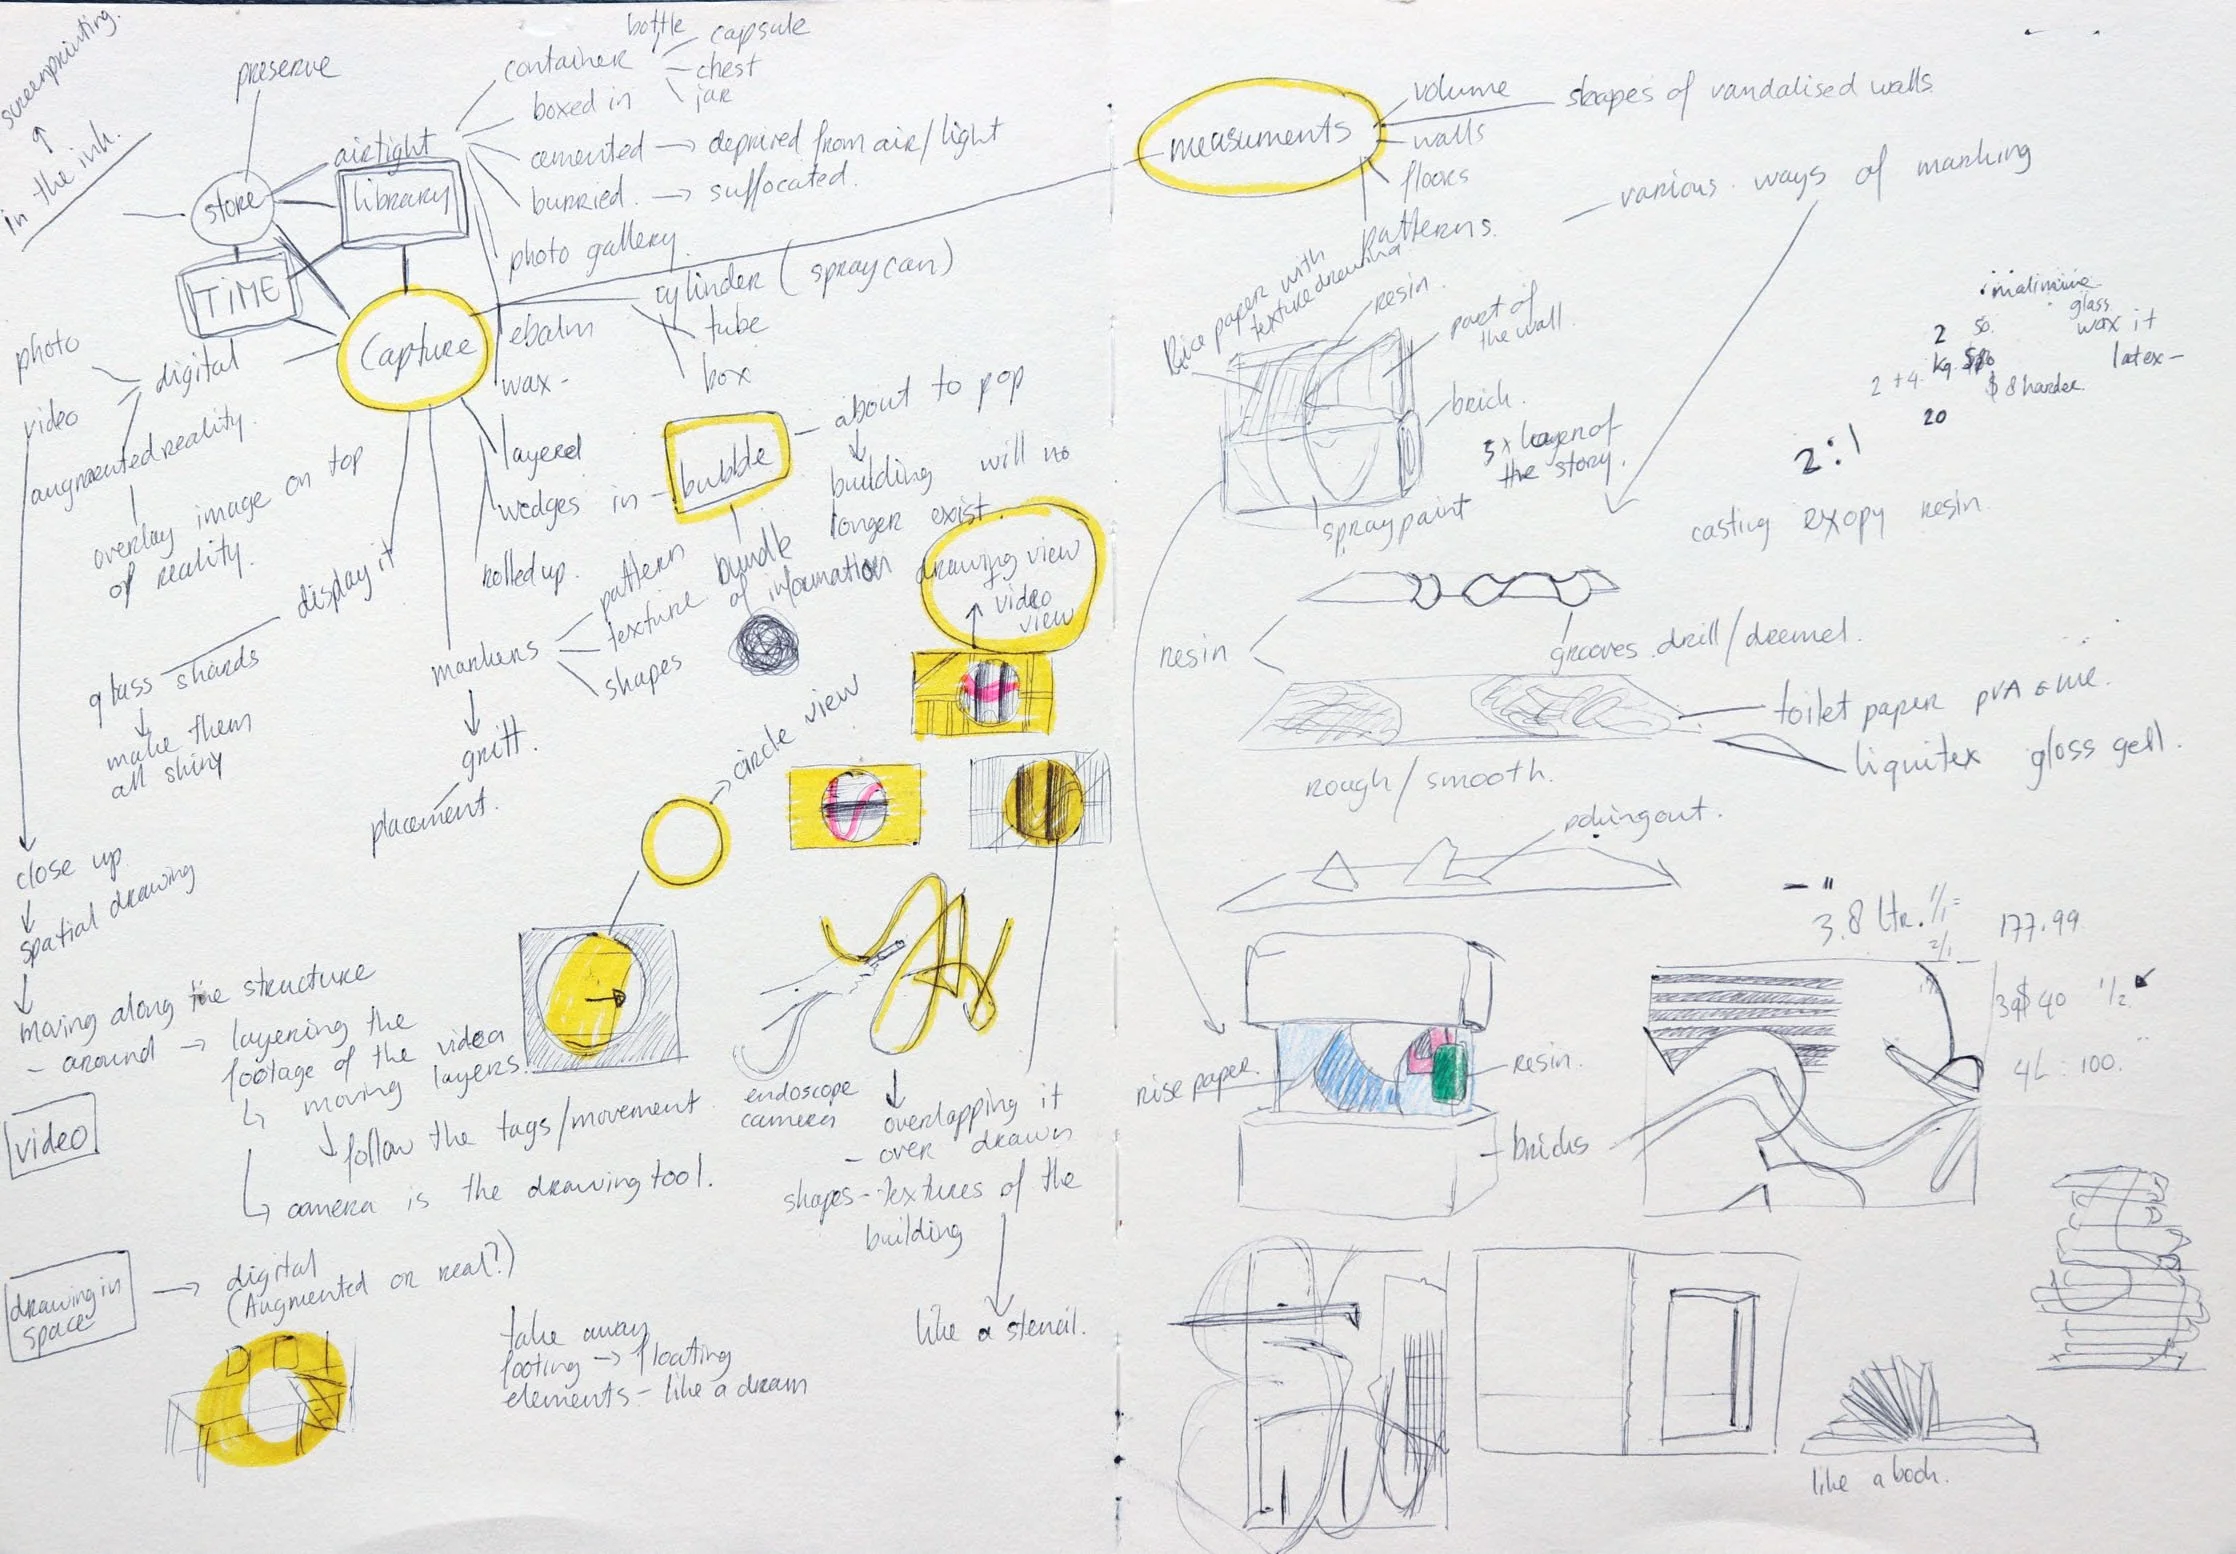 screenprinting.
in the ink.
preserve
store
airtight
library
TIME
Capture
container
bottle
capsule
chest
jar
boxed in
cemented → deprived from air/light
burried. → suffocated.
photo gallery.
cylinder (spraycan)
tube
box
ebalm
wax -
layered
wedges in
rolled up.
bubble
about to pop
building will no
longer exist.
bundle
of information
photo
video
digital
augmented reality.
overlay image on top
of reality.
display it
glass shards
make them
all shiny
markers
pattern
texture
shapes
gritt.
placement.
drawing view
video
view
circle view
close up
spatial drawing
moving along the structure
- around → layering the
footage of the video
moving layers.
follow the tags/movement.
camera is the drawing tool.
video
endoscope
camera
overlapping it
- over drawn
shapes - textures of the
building
like a stencil.
drawing in
space
digital
(Augmented or real?)
take away
footing → floating
elements - like a dream
measuments
volume
walls
floors
patterns.
shapes of vandalised walls
various ways of marking
Rice paper with
texture drawing
resin.
part of
the wall.
brick.
spraypaint
5 x layer of
the story.
glass
wax it
latex -
2
50.
kg.
2 + 4.
$8 harder.
20
2:1
casting exopy resin.
resin
grooves drill/dremel.
toilet paper PVA
liquitex gloss gell.
rough/smooth.
poking out.
3.8 ltr. 1/1 =
2/1
177.99
40 1/2
4L = 100.
rise paper.
resin.
bricks
like a book.